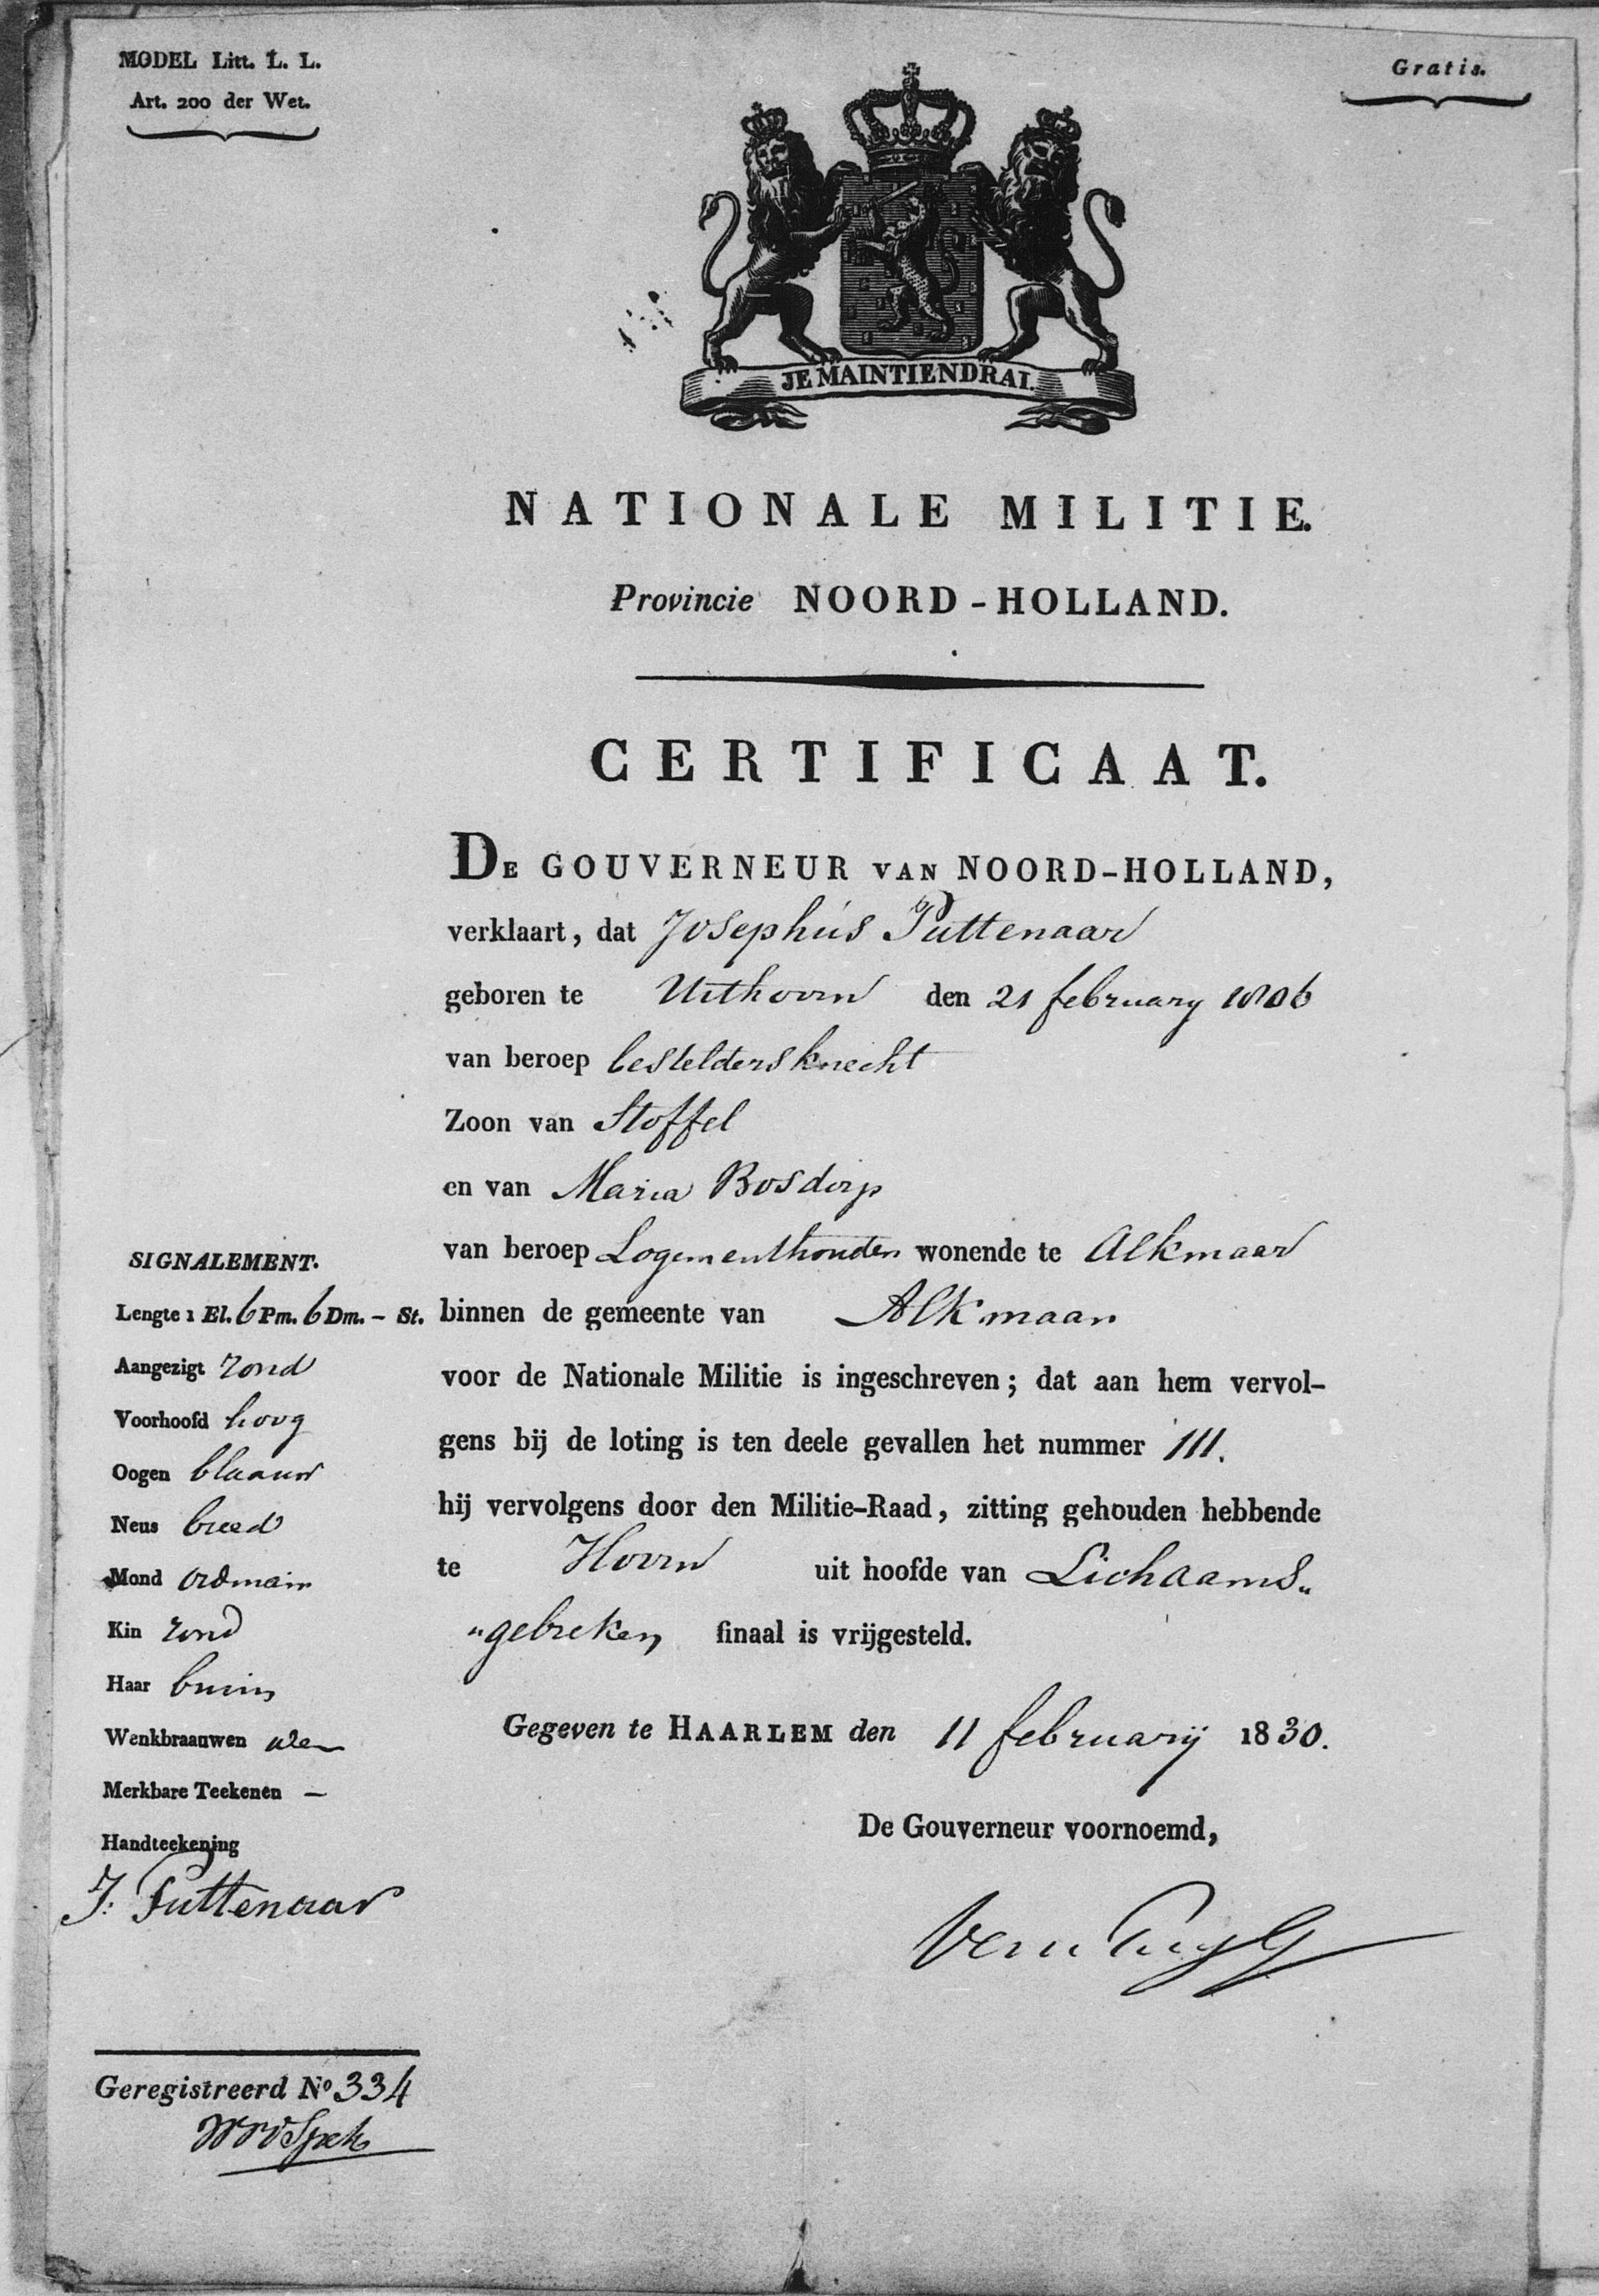 MODEL Litt. L. L.
Art. 200 der Wet.
Gratis.
JE MAINTIENDRAI.
NATIONALE MILITIE.
Provincie NOORD-HOLLAND.
CERTIFICAAT.
DE GOUVERNEUR VAN NOORD-HOLLAND,
verklaart, dat Josephus Puttenaar
geboren te Uithoorn den 21 february 1806
van beroep besteldersknecht
Zoon van Stoffel
en van Maria Bosdorp
van beroep Logementhouder wonende te Alkmaar
binnen de gemeente van Alkmaar
voor de Nationale Militie is ingeschreven; dat aan hem vervol-
gens bij de loting is ten deele gevallen het nummer 111.
hij vervolgens door den Militie-Raad, zitting gehouden hebbende
te Hoorn uit hoofde van Lichaams„
„gebreken finaal is vrijgesteld.
Gegeven te HAARLEM den 11 februarij 1830.
De Gouverneur voornoemd,
SIGNALEMENT.
Lengte 1 El. 6 Pm. 6 Dm. - St.
Aangezigt rond
Voorhoofd hoog
Oogen blaauw
Neus breed
Mond ordinair
Kin rond
Haar bruin
Wenkbraauwen idem
Merkbare Teekenen —
Handteekening
J: Puttenaar
Geregistreerd No 334